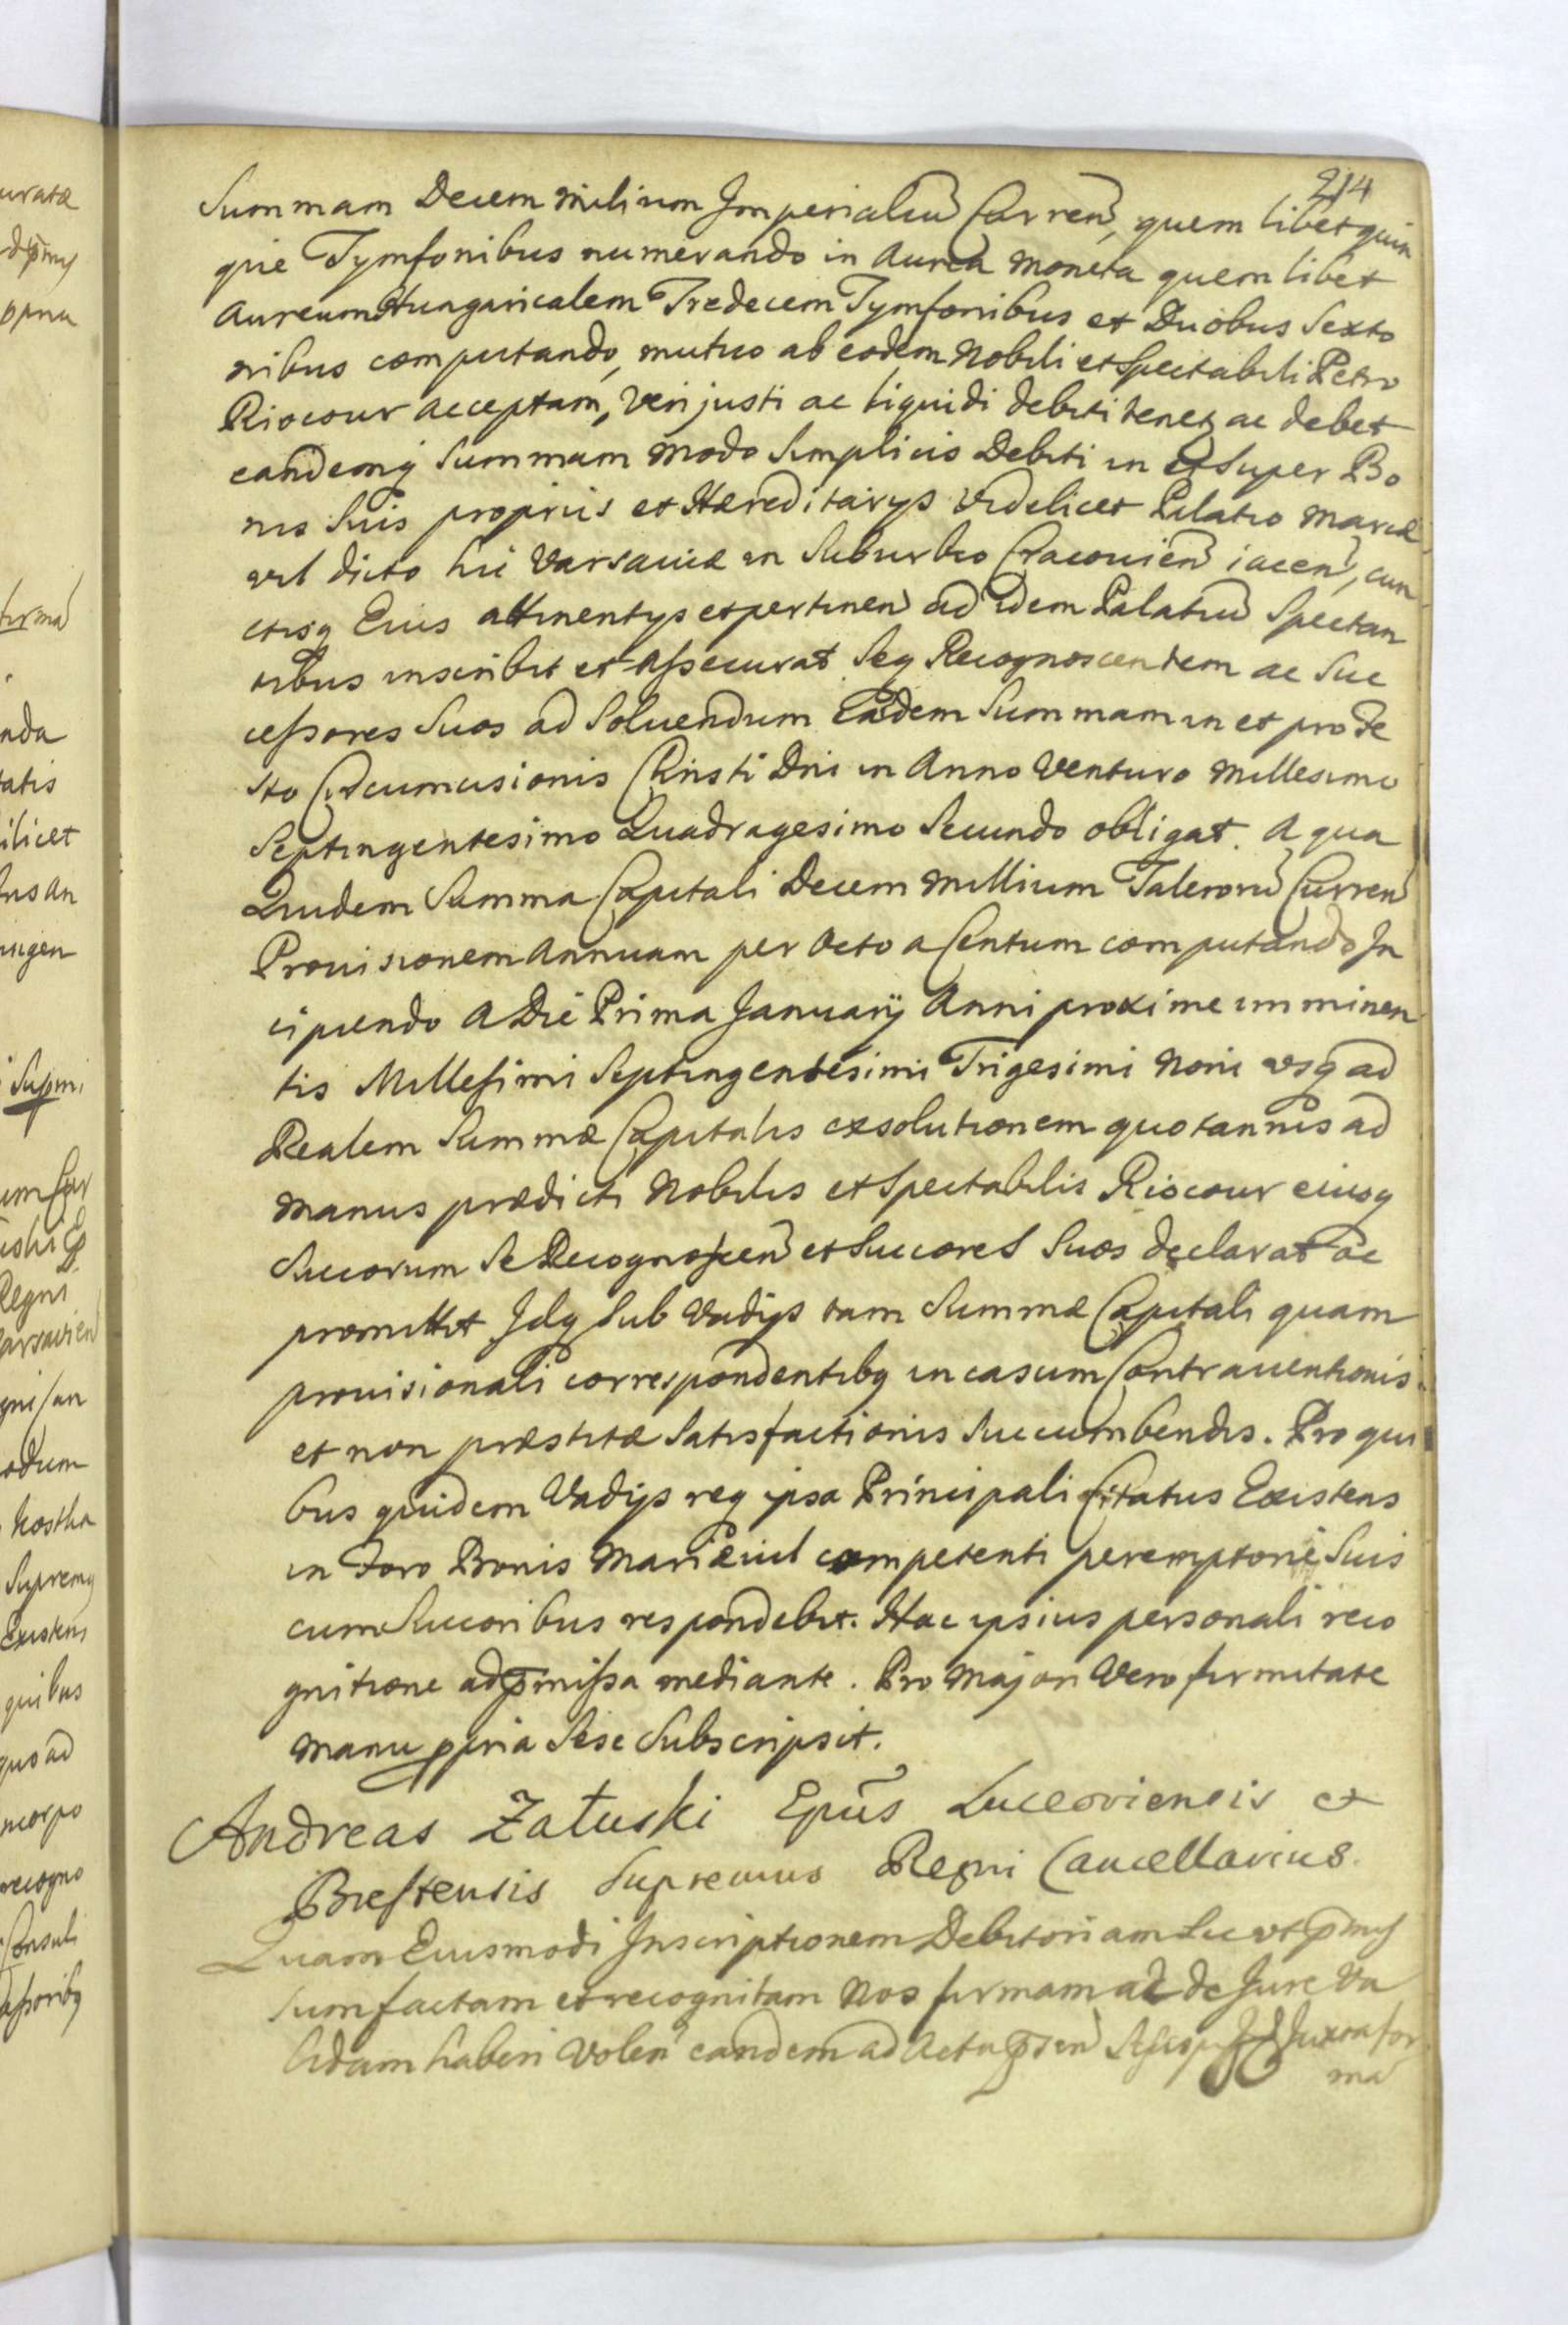 214
Summam Decem milium Imperialiũ Curreñ, quem libet quin
que Tymfonibus numerando in Aurea moneta quem libet
Aureum Hungaricalem Tredecem Tymfonibus et Duobus Sexto
nibus computando, mutuo ab eodem Nobili et Spectabili Petro
Riocour acceptam, Veri justi ac liquidi debiti tenetꝫ ac debet
eandemqꝫ Summam modo Simplicis Debiti in et Super Bo
nis Suis proprius et Hæreditarijs Videlicet Palatio Mariæ
vil dicto hic Varsaviæ in Suburbio Cracovień iaceñ, cun
ctisqꝫ Eius attinentijs et pertineñ ad idem Palatiũ Spectan
tibus inscribit et Assecurat Seqꝫ Recognoscentem ac Suc
cessores Suos ad Soluendum Eãdem Summam in et pro Fe
sto Circumcisionis Christi Dni in Anno Venturo Millesimo
Septingentesimo Quadragesimo Secundo obligat. A qua
Quidem Summa Capitali Decem Millium Talerorũ Curreñ
Provisionem Annuam per Octo a Centum computando In
cipiendo A Die Prima Januarij Anni proxime imminen
tis Millesimi Septingentesimi Trigesimi Noni vsqꝫ ad
Realem Summæ Capitalis exsolutionem quotannis ad
manus prædicti Nobilis et Spectabilis Riocour eiusqꝫ
Succorum Se Recognosceñ et Succores Suos declarat ac
promittit Idqꝫ Sub Vadijs tam Summæ Capitali quam
provisionali correspondentibꝫ in casum Contrauentionis
et non præstitæ Satisfactionis Succumbendis. Pro qui
bus quidem Vadijs reqꝫ ipsa Principali Citatus Existens
in Foro Bonis Mariæuil competenti peremptorie Suis
cum Succoribus respondebit. Hac ipsius personali reco
gnitione ad p̃missa mediante. Pro Majori Vero firmitate
manu ppria Sese Subscripsit.
Andreas Załuski Epũs Luceoriensis et
Brestensis Supremus Regni Cancellarius.
Quam Eiusmodi Inscriptionem Debitoriam Sic vt p̃mis
sum factam et recognitam Nos firmam ac de Jure Va
lidam haberi Voleñ eandem ad Acta p̃señ Juxta for
mã